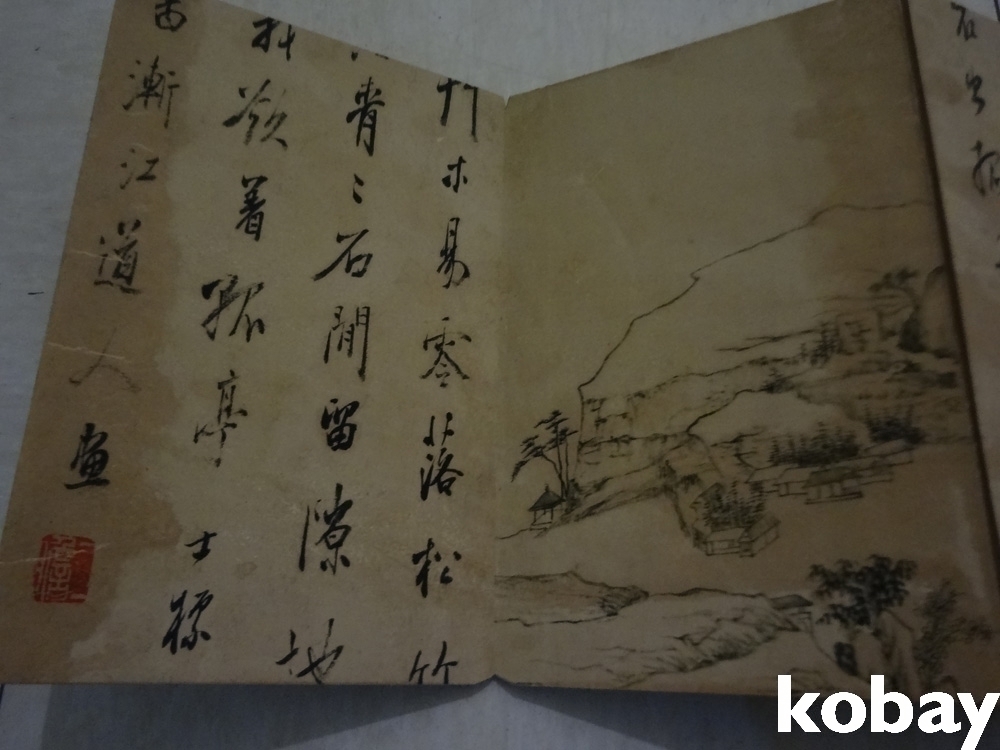 石
木易零落松竹
青〻石閒留隙地
欲着孤亭 士標
漸江道人畫
kobay